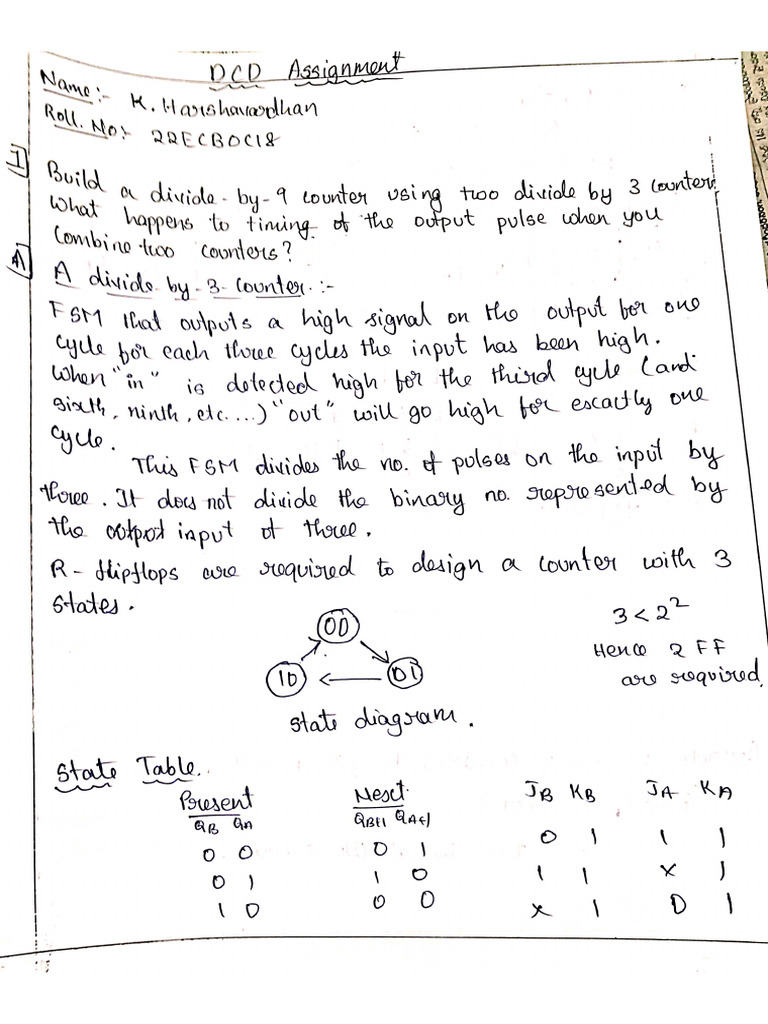 DCD Assignment
Name:- K. Harshavardhan
Roll. No:- 22ECB0C18
1] Build a divide-by-9 counter using two divide by 3 counter.
What happens to timing of the output pulse when you
combine two counters?
A] A divide by 3 counter:-
FSM that outputs a high signal on the output for one
cycle for each three cycles the input has been high.
When "in" is detected high for the third cycle (and
sixth, ninth, etc....) "out" will go high for excactly one
cycle.
This FSM divides the no. of pulses on the input by
three. It does not divide the binary no. represented by
the output input of three.
R-flipflops are required to design a counter with 3
states.
00
10 01
state diagram.
3 < 2²
Hence 2 FF
are required.
State Table.
Present Next JB KB JA KA
QB QA QB+1 QA+1
0 0 0 1 0 1 1 1
0 1 1 0 1 1 x 1
1 0 0 0 x 1 0 1